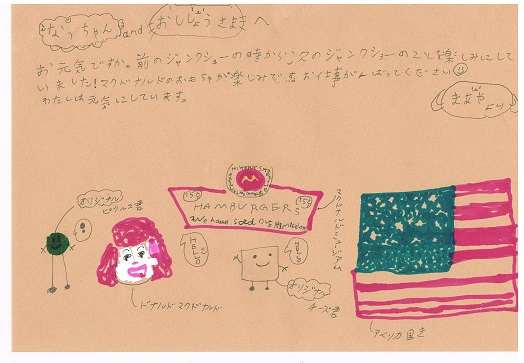 なっちゃん and おししょうさまへ
お元気ですか。前のジャンクショーの時から次のジャンクショーのことを楽しみにして
いました!マクドナルドのおもちゃが楽しみです。お仕事がんばってください
わたしは元気にしています。
まあやより
オリジナル
ピクルス君
HAMBURGERS
15¢
15¢
We have sold OVER million
マクドナルドミュージアム
HELLO
HELLO
オリジナル
チーズ君
ドナルドマクドナルド
アメリカ国き